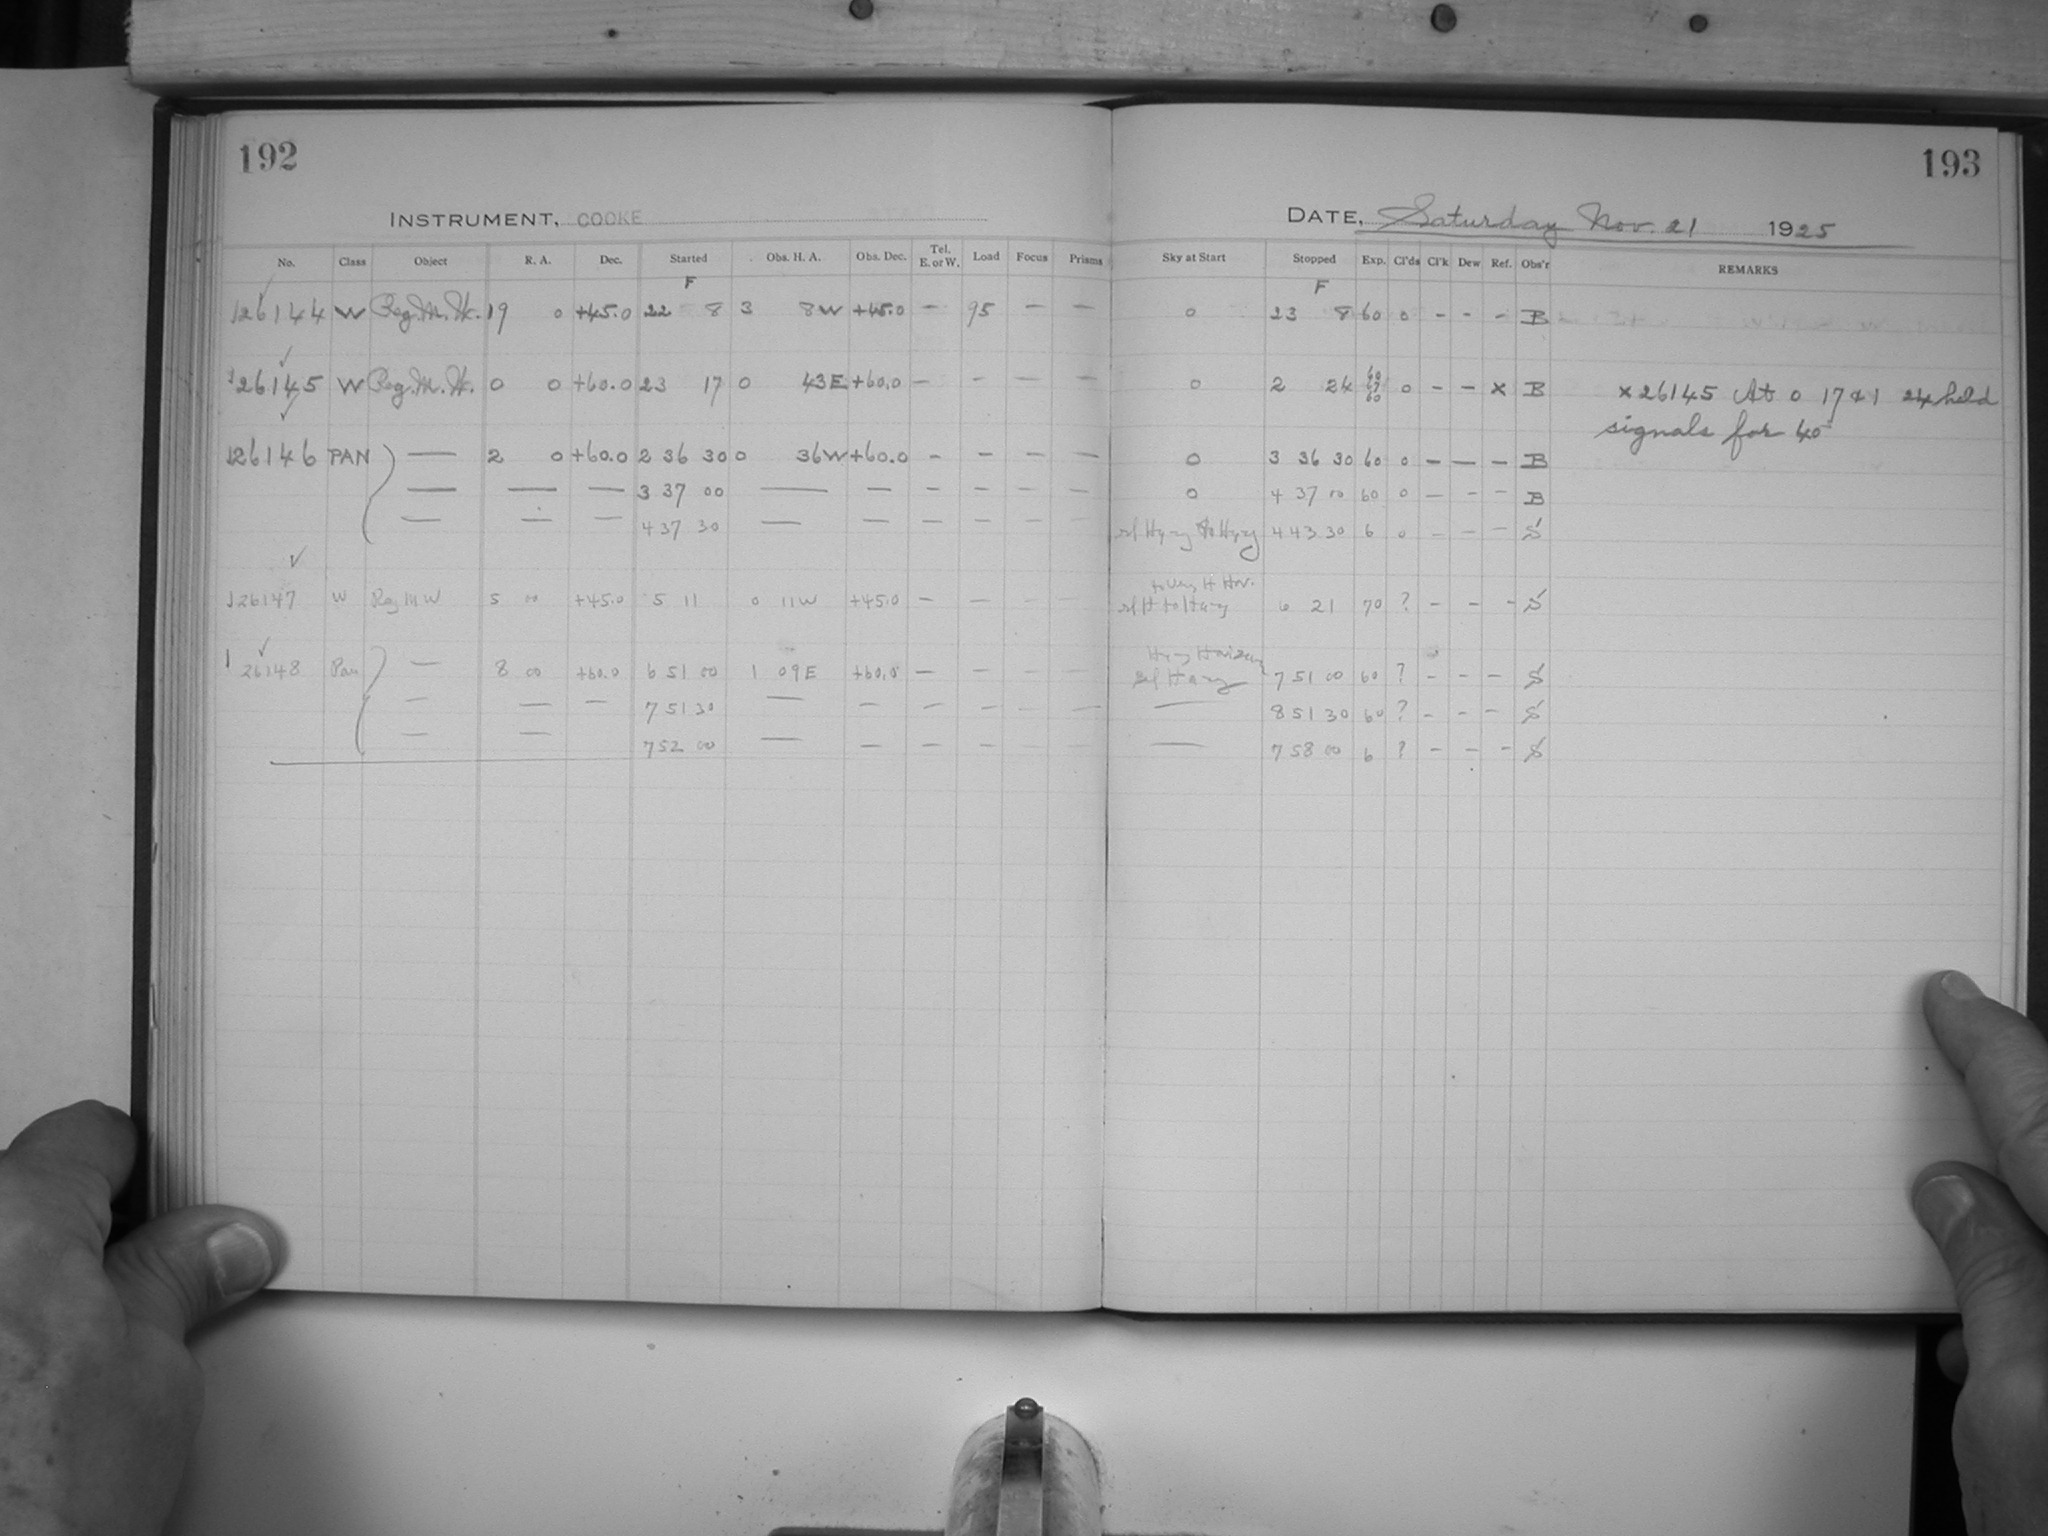 192
193
INSTRUMENT, COOKE
DATE, Saturday Nov. 21 1925
No. Class Object R. A. Dec. Started Obs. H. A. Obs. Dec. Tel. E. or W. Load Focus Prisms Sky at Start Stopped Exp. Cl'ds Cl'k Dew Ref. Obs'r REMARKS
F F
126144 W Reg. M. W. 19 0 +45.0 22 8 3 8W +45.0 — 95 — — 0 23 8 60 0 - - - B
126145 W Reg. M. W. 0 0 +60.0 23 17 0 43E +60.0 — — — — 0 2 24 60 67 60 0 - - x B x26145 At 0 17 & 1 24 held
signals for 40
126146 PAN — 2 0 +60.0 2 36 30 0 36W +60.0 — — — — 0 3 36 30 60 0 — — — B
— — — 3 37 00 — — — — — — 0 4 37 00 60 0 — - - B
— — — 4 37 30 — — — — — — 4 43 30 6 0 - - - S
126147 W Reg M W 5 00 +45.0 5 11 0 11W +45.0 — — — — 6 21 70 ? - - - S
126148 Pan — 8 00 +60.0 6 51 00 1 09E +60.0 — — — — 7 51 00 60 ? - - - S
— — — 7 51 30 — — — — — — — 8 51 30 60 ? - - - S
— — 7 52 00 — — — — — — — 7 58 00 6 ? - - - S